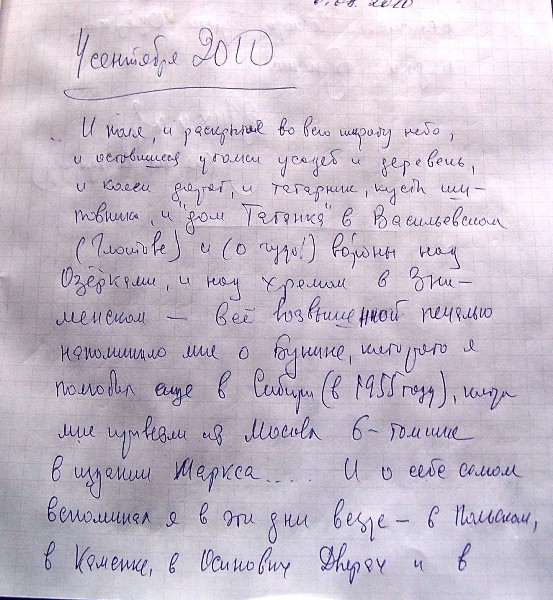 4 сентября 2010
.. И поля, и раскрытое во всю широту небо,
и оставшиеся уголки усадеб и деревень,
и колеи дорог, и татарник, кусты ши-
повника, и "дом Татьянка" в Васильевском
(Глотове) и (о чудо!) вороны над
Озёрками, и над храмом в Зна-
менском — всё возвышенной печалью
напомнило мне о Бунине, которого я
полюбил еще в Сибири (в 1955 году), когда
мне привезли из Москвы 6-томник
в издании Маркса..... И о себе самом
вспоминал я в эти дни везде — в Польском,
в Каменке, в Осиновых Дворах и в